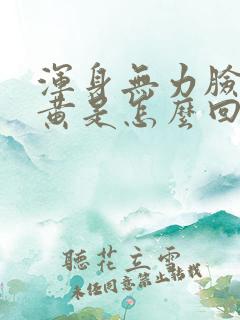 渾身無力臉
黃是怎麼回
聽花立雲
未經同意禁止轉載